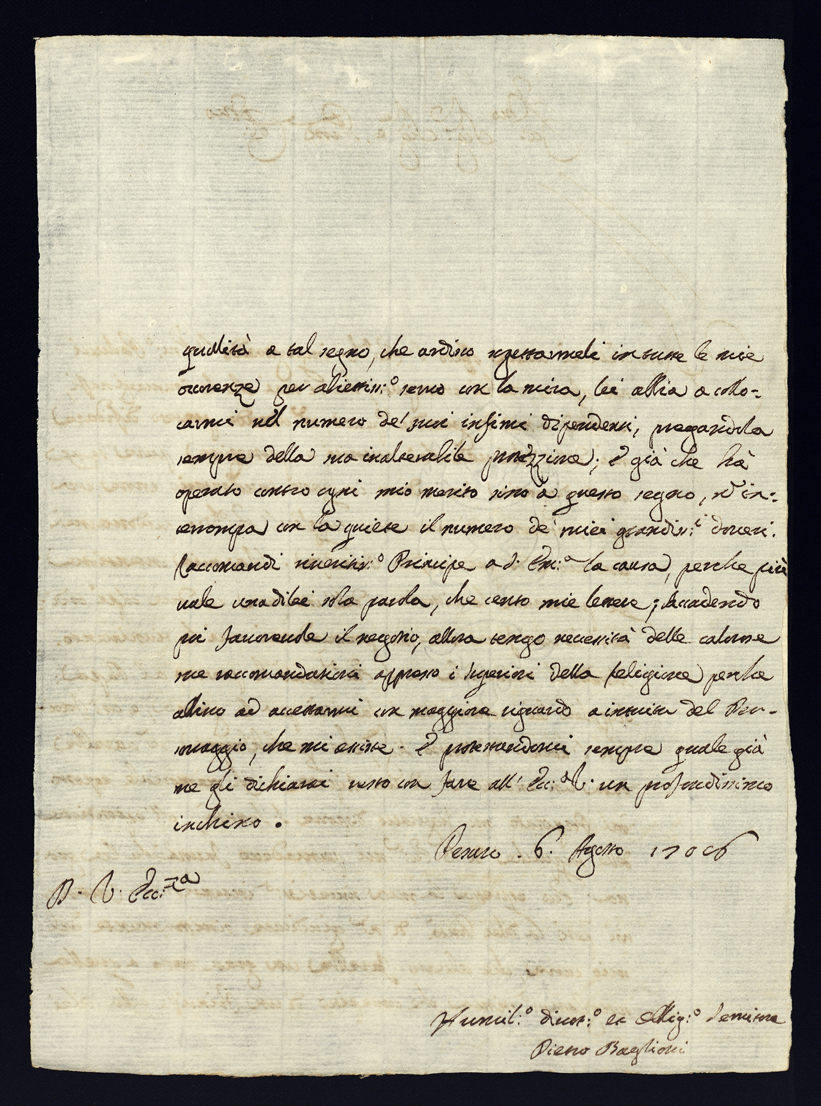 qualità a tal segno, che ardisco rgettarmeli in tutte le mie
ocorenze per abietiss:º servo con la mira, lei abbia a collo-
carmi nel numero de' suoi infimi dipendenti, pregandola
sempre della sua inalterabile protezzione; E già che hà
operato contro ogni mio merito sino à questo segno,
con la quiete il numero de' miei grandis:i doveri.
Raccomandi riveritis:º Principe a d: Em:a la causa, perche più
vale una di lei sola parola, che cento mie lettere; Accadendo
poi favorevole il negozio, allora tengo necessità delle calorose
sue raccomandationi appresso i Superiori della Religione perche
abbino ad accettarmi con maggiore riguardo a intuito del Per-
sonaggio, che mi assiste. E protestandomi sempre quale già
me gli dichiarai resto con fare all' Ecc:a V. un profundissimo
inchino.
Pesaro. 6. Agosto 1706
D. V. Ecc:za
Humil:º divot:º et Oblig:º Servitore
Pietro Baglioni